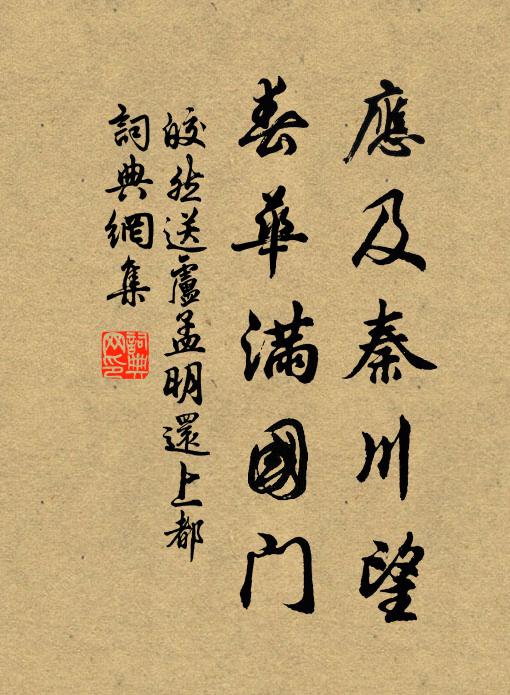 應及秦川望
春華滿國门
皎然送盧孟明還上都
詞典網集
詞典
网印